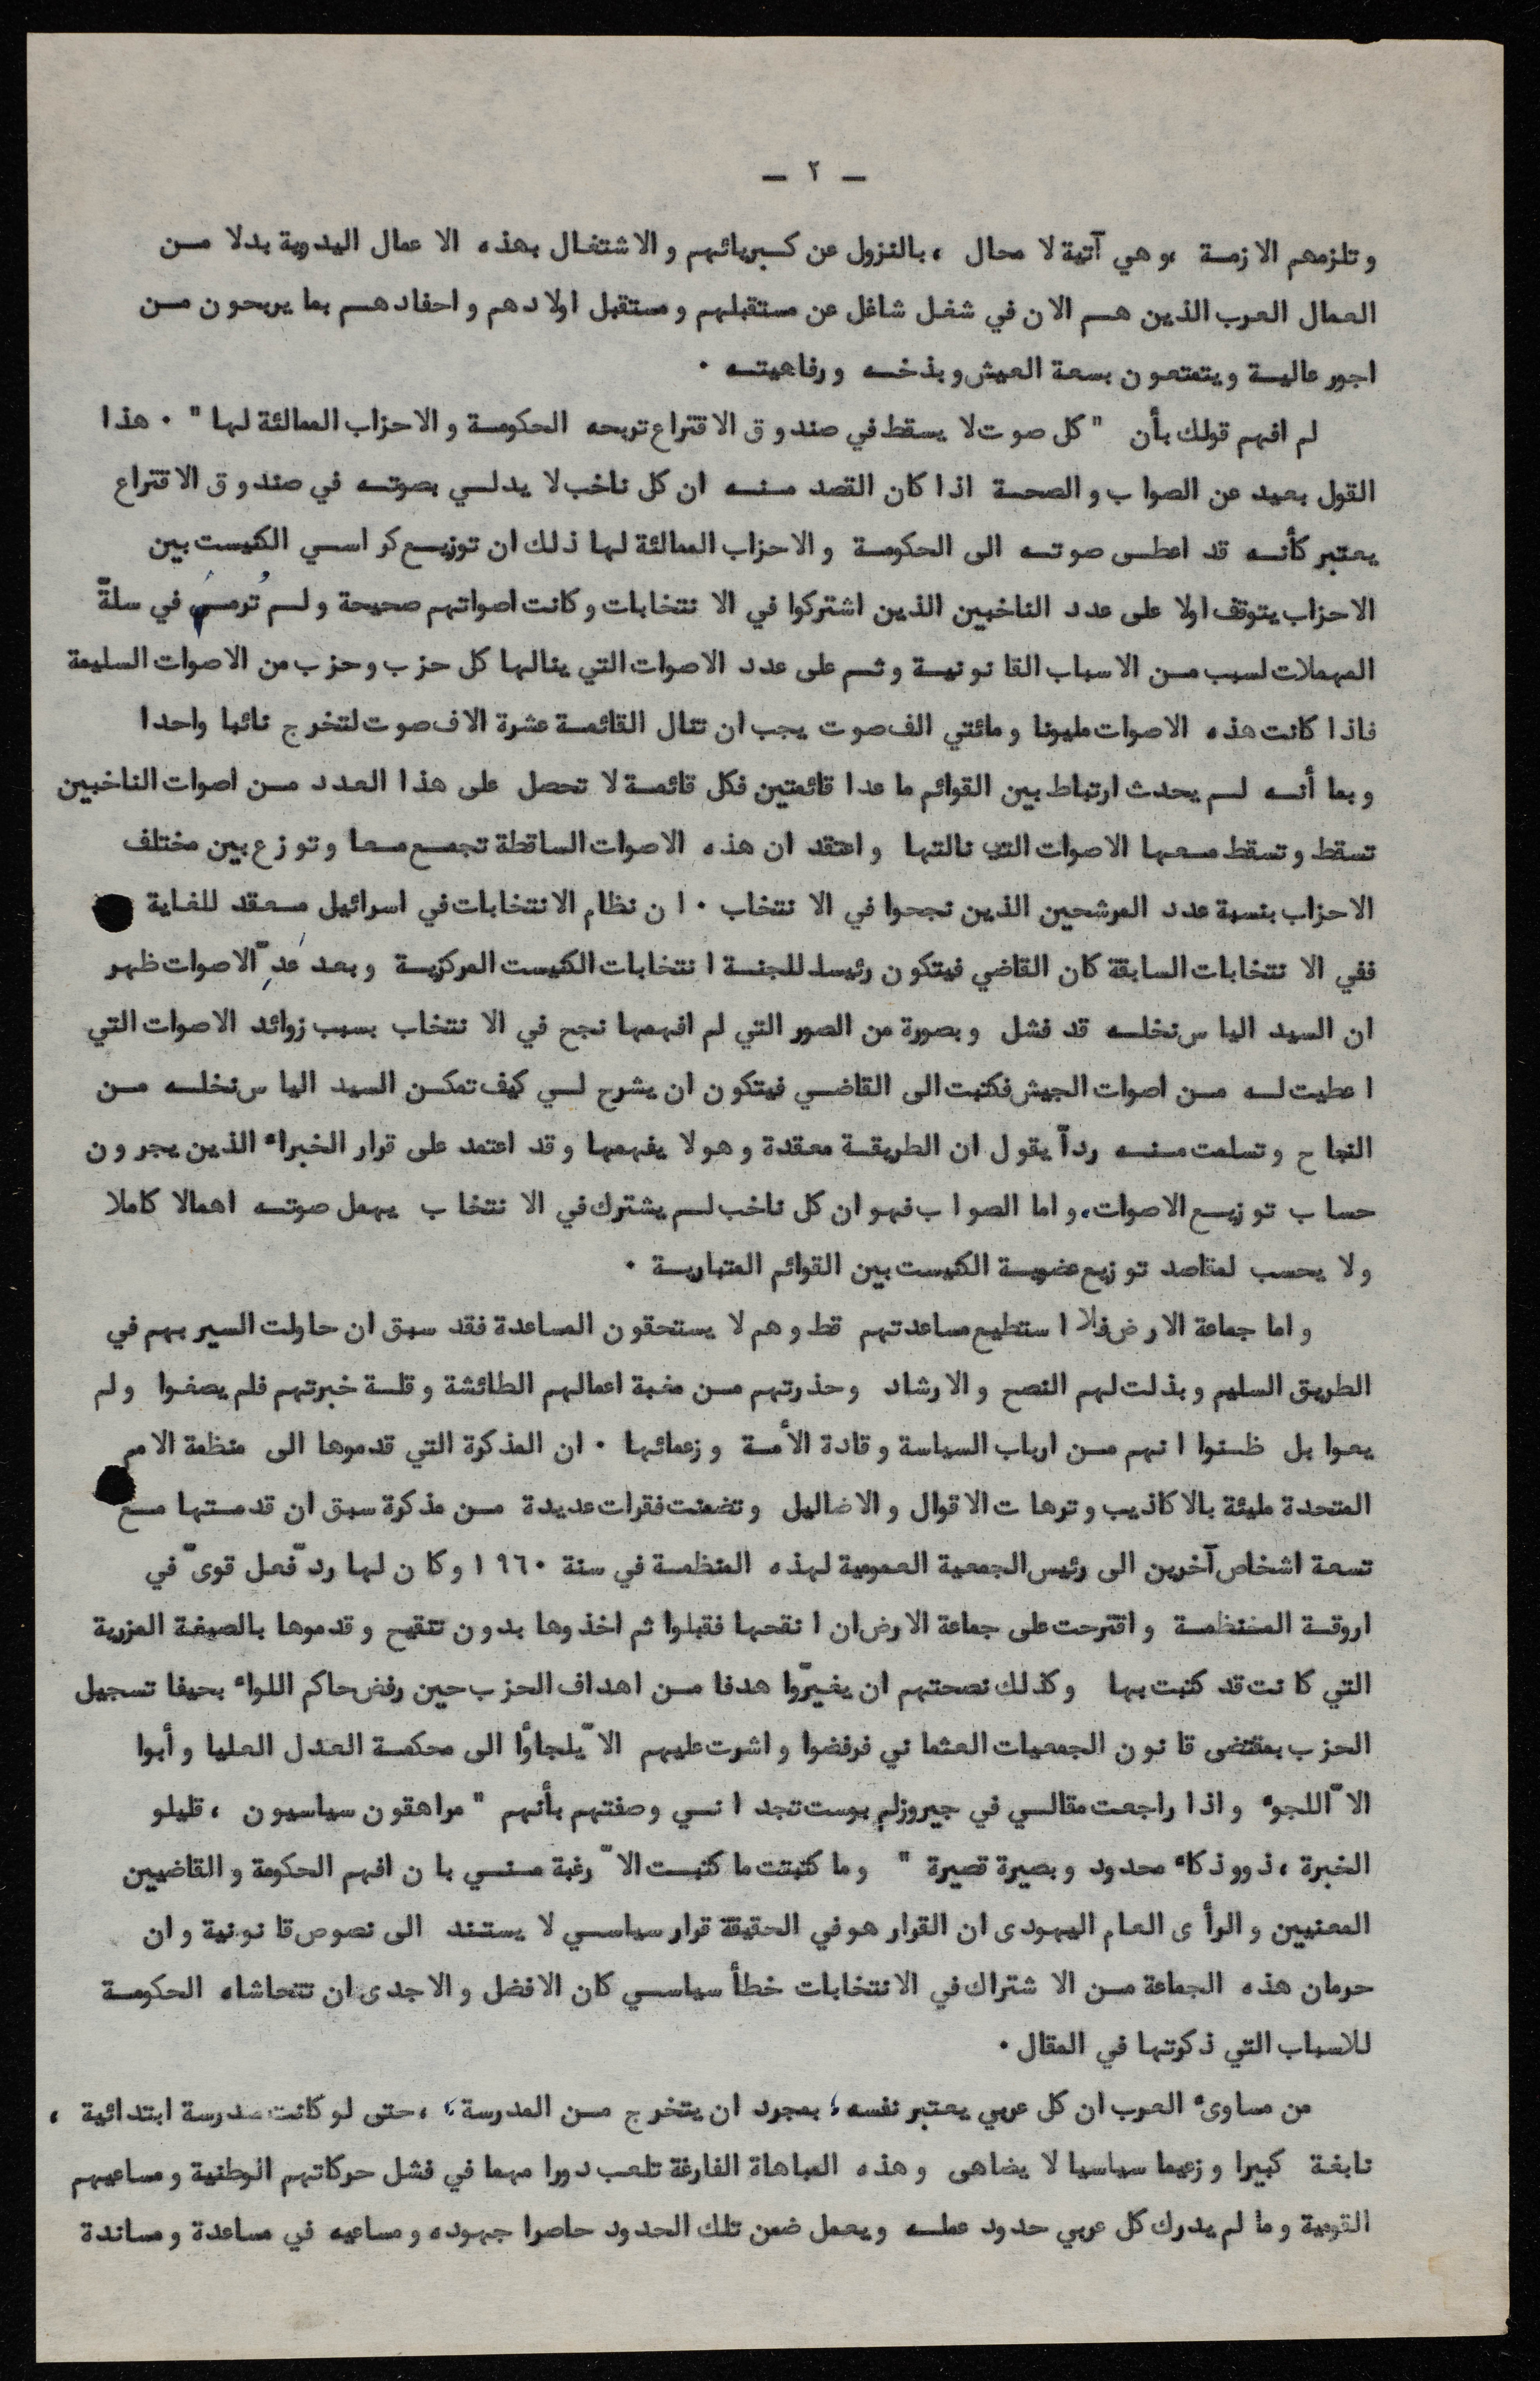 — ٢ —
وتلزمهم الازمة ،وهي آتية لا محال ، بالنزول عن كبريائهم والاشتغال بهذه الاعمال اليدوية بدلا من
العمال العرب الذين هم الان في شغل شاغل عن مستقبلهم ومستقبل اولادهم واحفادهم بما يربحون من
اجور عالية ويتمتعون بسعة العيش وبذخه ورفاهيته .
لم افهم قولك بأن " كل صوت لا يسقط في صندوق الاقتراع تربحه الحكومة والاحزاب الممالئة لها " . هذا
القول بعيد عن الصواب والصحة اذا كان القصد منه ان كل ناخب لا يدلي بصوته في صندوق الاقتراع
يعتبر كأنه قد اعطى صوته الى الحكومة والاحزاب الممالئة لها ذلك ان توزيع كراسي الكنيست بين
الاحزاب يتوقف اولا على عدد الناخبين الذين اشتركوا في الانتخابات وكانت اصواتهم صحيحة ولم تُرمَ في سلةّ
المهملات لسبب من الاسباب القانونية وثم على عدد الاصوات التي ينالها كل حزب وحزب من الاصوات السليمة
فاذا كانت هذه الاصوات مليونا ومائتي الف صوت يجب ان تنال القائمة عشرة الاف صوت لتخرج نائبا واحدا
وبما أنه لم يحدث ارتباط بين القوائم ما عدا قائمتين فكل قائمة لا تحصل على هذا العدد من اصوات الناخبين
تسقط وتسقط معها الاصوات التي نالتها واعتقد ان هذه الاصوات الساقطة تجمع معا وتوزع بين مختلف
الاحزاب بنسبة عدد المرشحين الذين نجحوا في الانتخاب . ان نظام الانتخابات في اسرائيل معقد للغاية
ففي الانتخابات السابقة كان القاضي فيتكون رئيسا للجنة انتخابات الكنيست المركزية وبعد عَدِّ الاصوات ظهر
ان السيد الياس نخله قد فشل وبصورة من الصور التي لم افهمها نجح في الانتخاب بسبب زوائد الاصوات التي
اعطيت له من اصوات الجيش فكتبت الى القاضي فيتكون ان يشرح لي كيف تمكن السيد الياس نخله من
النجاح وتسلمت منه رداّ يقول ان الطريقة معقدة وهو لا يفهمها وقد اعتمد على قرار الخبراء الذين يجرون
حساب توزيع الاصوات، واما الصواب فهو ان كل ناخب لم يشترك في الانتخاب يهمل صوته اهمالا كاملا
ولا يحسب لمقاصد توزيع عضوية الكنيست بين القوائم المتبارية .
واما جماعة الارض فلا استطيع مساعدتهم قط وهم لا يستحقون المساعدة فقد سبق ان حاولت السير بهم في
الطريق السليم وبذلت لهم النصح والارشاد وحذرتهم من مغبة اعمالهم الطائشة وقلة خبرتهم فلم يصغوا ولم
يعوا بل ظنوا انهم من ارباب السياسة وقادة الأمة وزعمائها . ان المذكرة التي قدموها الى منظمة الامم
المتحدة مليئة بالاكاذيب وترهات الاقوال والاضاليل وتضمنت فقرات عديدة من مذكرة سبق ان قدمتها مع
تسعة اشخاص آخرين الى رئيس الجمعية العمومية لهذه المنظمة في سنة ١٩٦٠ وكان لها ردّ فعل قويّ في
اروقة المنتظمة واقترحت على جماعة الارض ان انقحها فقبلوا ثم اخذوها بدون تنقيح وقدموها بالصيغة المزرية
التي كانت قد كتبت بها وكذلك نصحتهم ان يغيّروا هدفا من اهداف الحزب حين رفض حاكم اللواء بحيفا تسجيل
الحزب بمقتضى قانون الجمعيات العثماني فرفضوا واشرت عليهم الاّ يلجأوا الى محكمة العدل العليا وأبوا
الاّ اللجوء واذا راجعت مقالي في جيروزلم بوست تجد اني وصفتهم بأنهم " مراهقون سياسيون ، قليلو
الخبرة ، ذوو ذكاء محدود وبصيرة قصيرة " وما كتبتت ما كتبت الاّ رغبة مني بان افهم الحكومة والقاضيين
المعنيين والرأى العام اليهودى ان القرار هو في الحقيقة قرار سياسي لا يستند الى نصوص قانونية وان
حرمان هذه الجماعة من الاشتراك في الانتخابات خطأ سياسي كان الافضل والاجدى ان تتحاشاه الحكومة
للاسباب التي ذكرتها في المقال .
من مساوىء العرب ان كل عربي يعتبر نفسه ، بمجرد ان يتخرج من المدرسة ، ،حتى لو كانت مدرسة ابتدائية ،
نابغة كبيرا وزعيما سياسيا لا يضاهى وهذه المباهاة الفارغة تلعب دورا مهما في فشل حركاتهم الوطنية ومساعيهم
القومية وما لم يدرك كل عربي حدود عمله ويعمل ضمن تلك الحدود حاصرا جهوده ومساعيه في مساعدة ومساندة